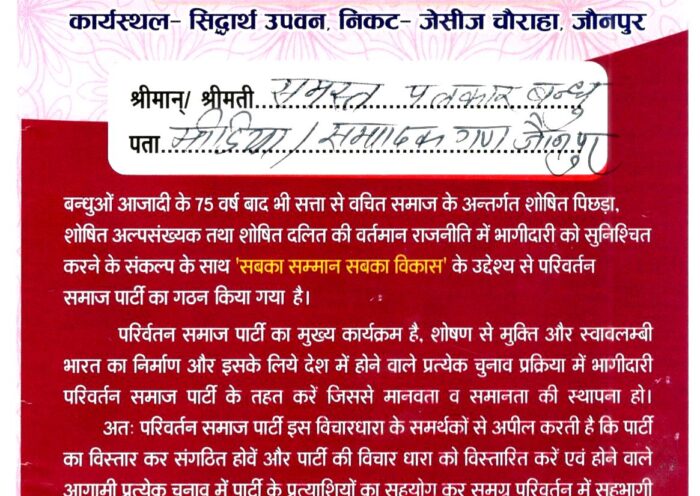 कार्यस्थल- सिद्धार्थ उपवन, निकट- जेसीज चौराहा, जौनपुर
श्रीमान्/ श्रीमती....समस्त पत्रकार बन्धु
पता....मीडिया / सम्पादक गण जौनपुर
बन्धुओं आजादी के 75 वर्ष बाद भी सत्ता से वचित समाज के अन्तर्गत शोषित पिछड़ा,
शोषित अल्पसंख्यक तथा शोषित दलित की वर्तमान राजनीति में भागीदारी को सुनिश्चित
करने के संकल्प के साथ 'सबका सम्मान सबका विकास' के उद्देश्य से परिवर्तन
समाज पार्टी का गठन किया गया है।
परिर्वतन समाज पार्टी का मुख्य कार्यक्रम है, शोषण से मुक्ति और स्वावलम्बी
भारत का निर्माण और इसके लिये देश में होने वाले प्रत्येक चुनाव प्रक्रिया में भागीदारी
परिवर्तन समाज पार्टी के तहत करें जिससे मानवता व समानता की स्थापना हो।
अतः परिवर्तन समाज पार्टी इस विचारधारा के समर्थकों से अपील करती है कि पार्टी
का विस्तार कर संगठित होवें और पार्टी की विचार धारा को विस्तारित करें एवं होने वाले
आगामी प्रत्येक चुनाव में पार्टी के प्रत्याशियों का सहयोग कर समग्र परिवर्तन में सहभागी